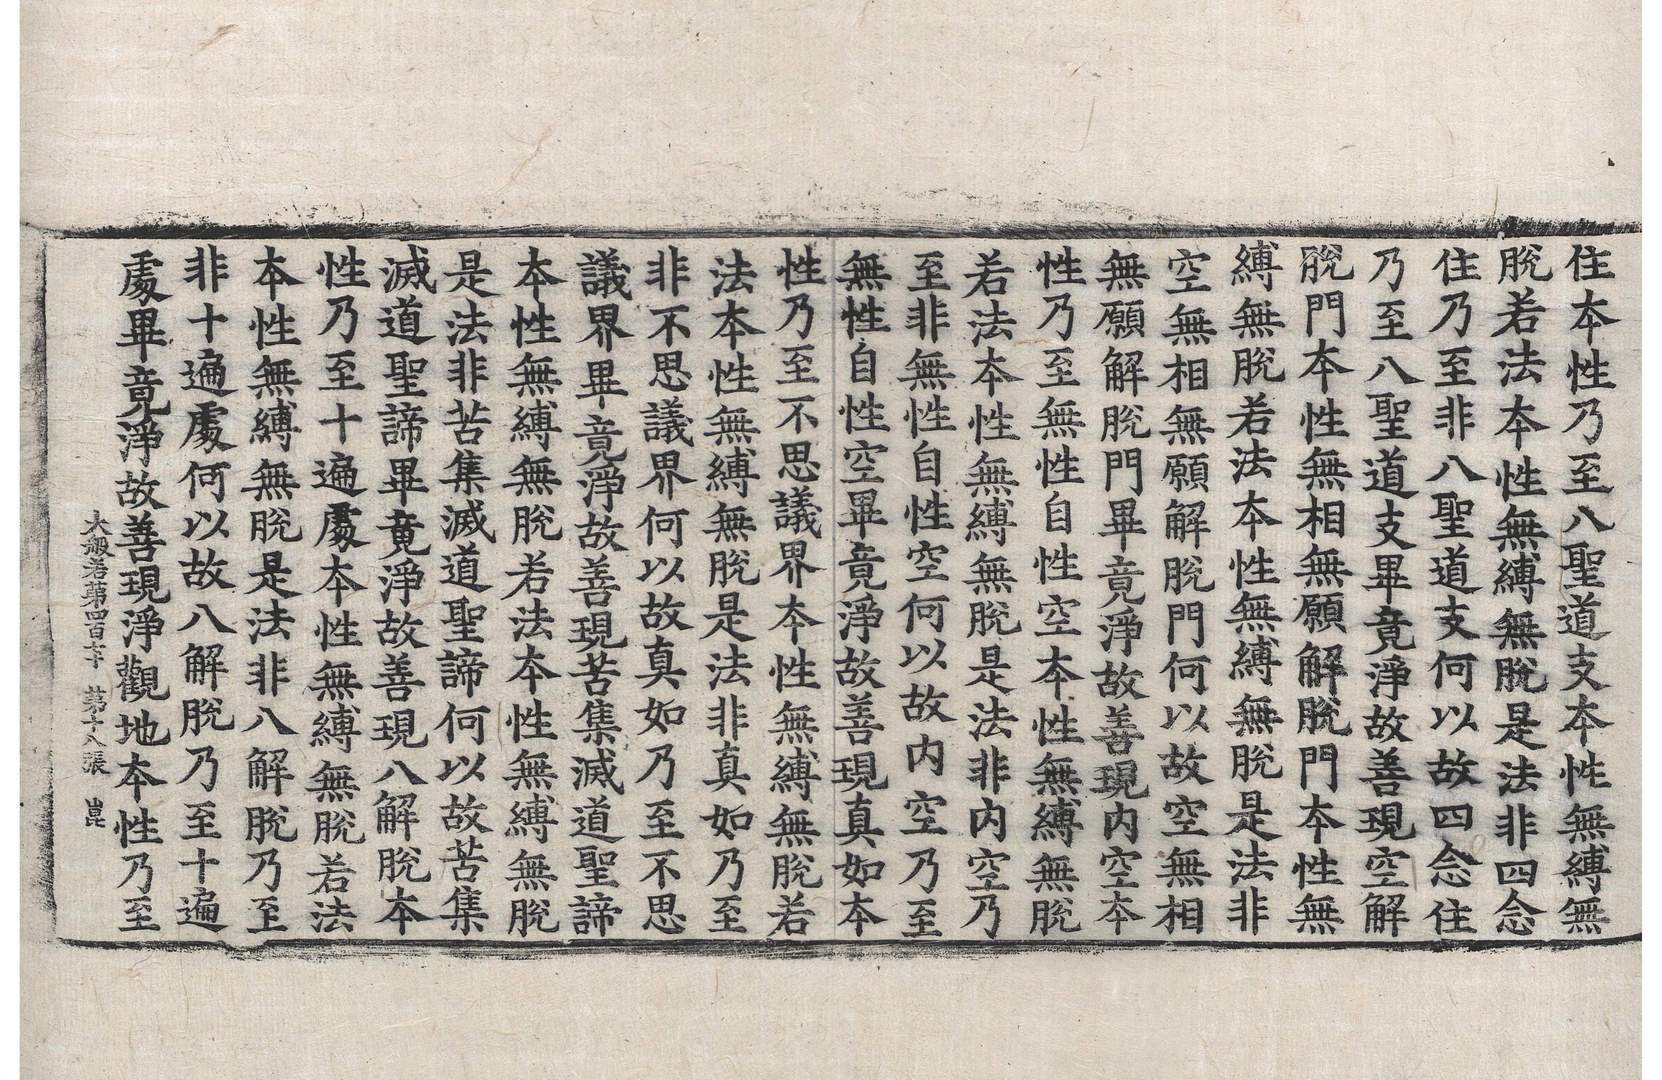 住本性乃至八聖道支本性無縛無
脫若法本性無縛無脫是法非四念
住乃至非八聖道支何以故四念住
乃至八聖道支畢竟淨故善現空解
脫門本性無相無願解脫門本性無
縛無脫若法本性無縛無脫是法非
空無相無願解脫門何以故空無相
無願解脫門畢竟淨故善現內空本
性乃至無性自性空本性無縛無脫
若法本性無縛無脫是法非內空乃
至非無性自性空何以故內空乃至
無性自性空畢竟淨故善現真如本
性乃至不思議界本性無縛無脫若
法本性無縛無脫是法非真如乃至
非不思議界何以故真如乃至不思
議界畢竟淨故善現苦集滅道聖諦
本性無縛無脫若法本性無縛無脫
是法非苦集滅道聖諦何以故苦集
滅道聖諦畢竟淨故善現八解脫本
性乃至十遍處本性無縛無脫若法
本性無縛無脫是法非八解脫乃至
非十遍處何以故八解脫乃至十遍
處畢竟淨故善現淨觀地本性乃至
大般若第四百 第十八張 崑